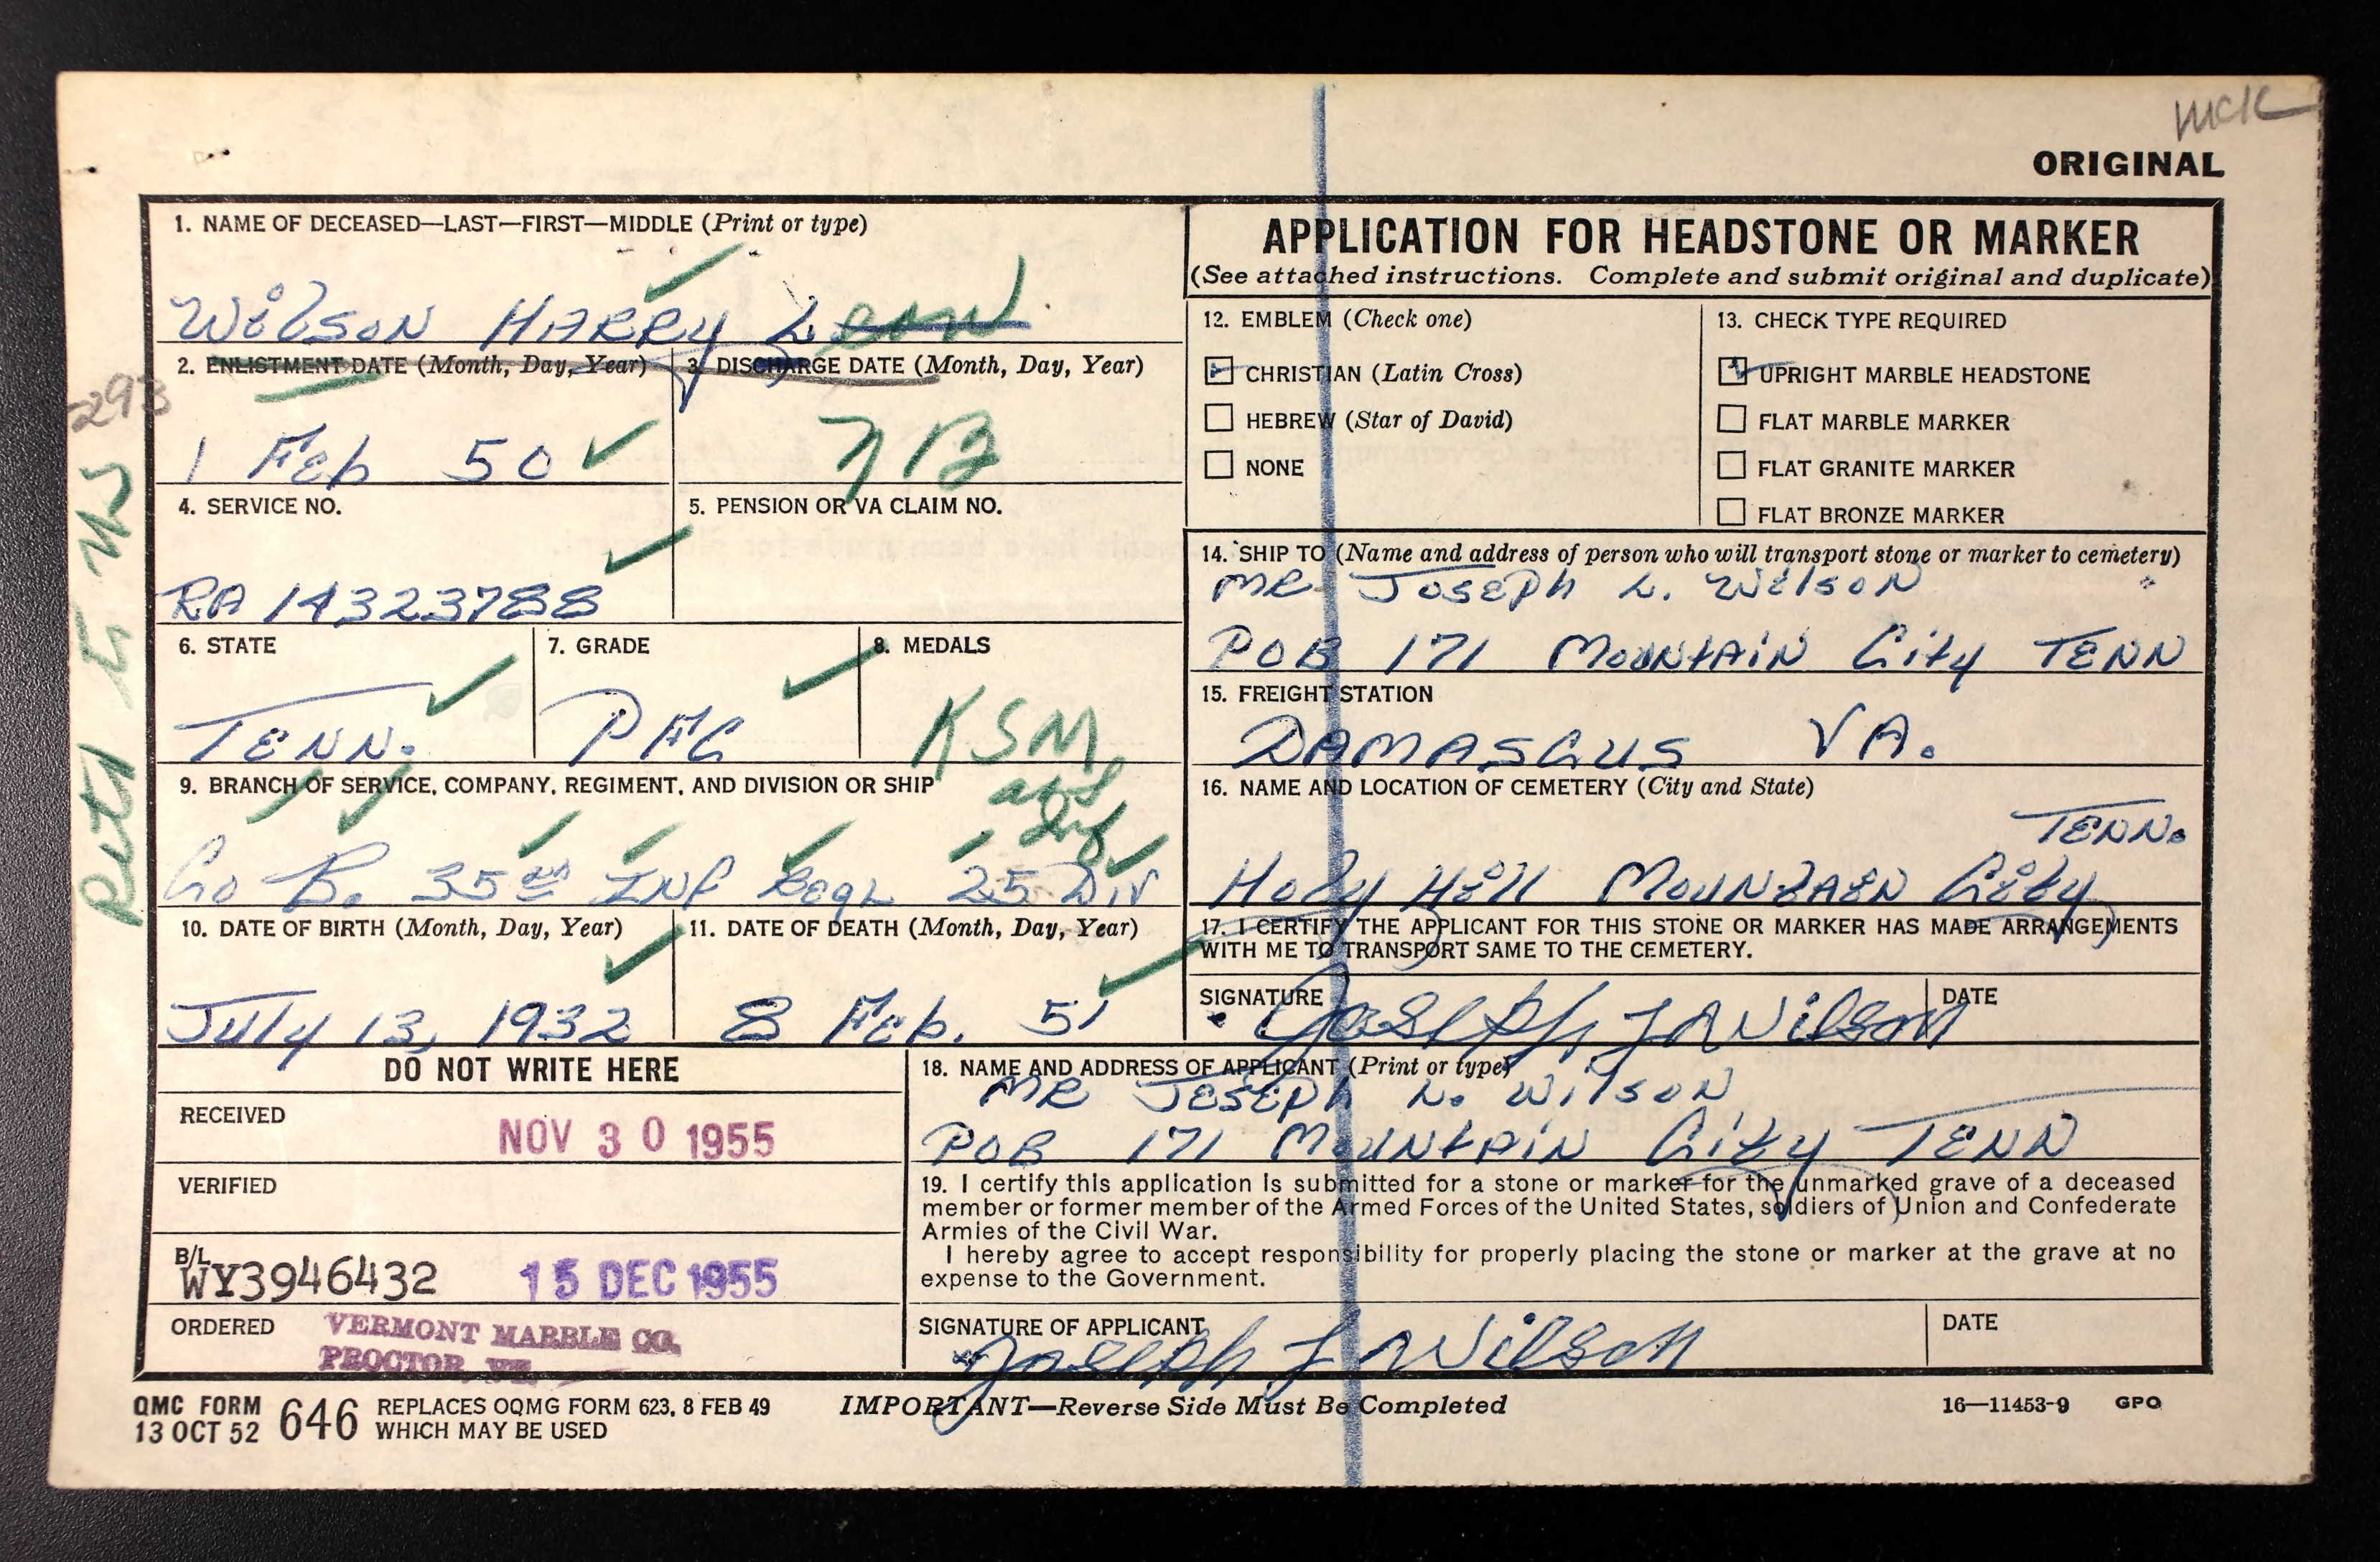 MCK
ORIGINAL
1. NAME OF DECEASED—LAST—FIRST—MIDDLE (Print or type)
WilsoN HARRy L
2. ENLISTMENT DATE (Month, Day, Year)
1 Feb 50
3. DISCHARGE DATE (Month, Day, Year)
4. SERVICE NO.
RA 14323788
5. PENSION OR VA CLAIM NO.
6. STATE
TENN.
7. GRADE
PFC
8. MEDALS
KSM
9. BRANCH OF SERVICE, COMPANY, REGIMENT, AND DIVISION OR SHIP
Co B. 35 INF 25 Div
10. DATE OF BIRTH (Month, Day, Year)
July 13, 1932
11. DATE OF DEATH (Month, Day, Year)
8 Feb. 51
APPLICATION FOR HEADSTONE OR MARKER
(See attached instructions. Complete and submit original and duplicate)
12. EMBLEM (Check one)
CHRISTIAN (Latin Cross)
HEBREW (Star of David)
NONE
13. CHECK TYPE REQUIRED
UPRIGHT MARBLE HEADSTONE
FLAT MARBLE MARKER
FLAT GRANITE MARKER
FLAT BRONZE MARKER
14. SHIP TO (Name and address of person who will transport stone or marker to cemetery)
MR JosEPh L. WilsoN
POB 171 MOUNTAiN City TENN
15. FREIGHT STATION
DAMASCUS VA.
16. NAME AND LOCATION OF CEMETERY (City and State)
TENN.
Holy Hill MOUNTAIN City
17. I CERTIFY THE APPLICANT FOR THIS STONE OR MARKER HAS MADE ARRANGEMENTS
WITH ME TO TRANSPORT SAME TO THE CEMETERY.
SIGNATURE
Joseph L Wilson
DATE
DO NOT WRITE HERE
RECEIVED
NOV 30 1955
VERIFIED
B/L
WY3946432 15 DEC 1955
ORDERED
VERMONT MARBLE CO.
PROCTOR, VT.
18. NAME AND ADDRESS OF APPLICANT (Print or type)
MR JosEPh L. WilsoN
POB 171 MOUNTAiN City TENN
19. I certify this application is submitted for a stone or marker for the unmarked grave of a deceased
member or former member of the Armed Forces of the United States, soldiers of Union and Confederate
Armies of the Civil War.
I hereby agree to accept responsibility for properly placing the stone or marker at the grave at no
expense to the Government.
SIGNATURE OF APPLICANT
Joseph L Wilson
DATE
QMC FORM
13 OCT 52
646
REPLACES OQMG FORM 623, 8 FEB 49
WHICH MAY BE USED
IMPORTANT—Reverse Side Must Be Completed
16—11453-9 GPO
293